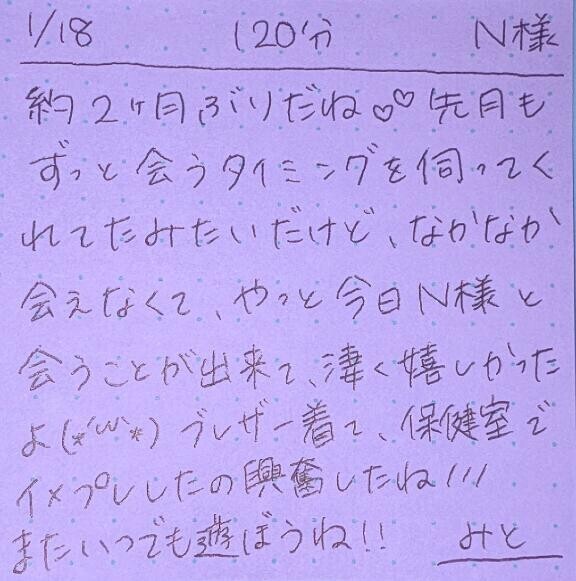 1/18 120分 N様
約2ヶ月ぶりだね♡♡先月も
ずっと会うタイミングを伺ってく
れてたみたいだけど、なかなか
会えなくて、やっと今日N様と
会うことが出来て、凄く嬉しかった
よ(*´ω`*) ブレザー着て、保健室で
イメプレしたの興奮したね///
またいつでも遊ぼうね!! みと